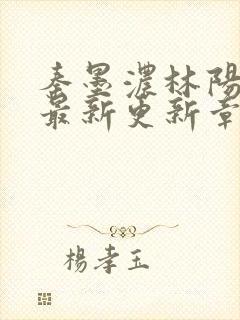 秦墨濃林陽
最新更新章
楊孝玉